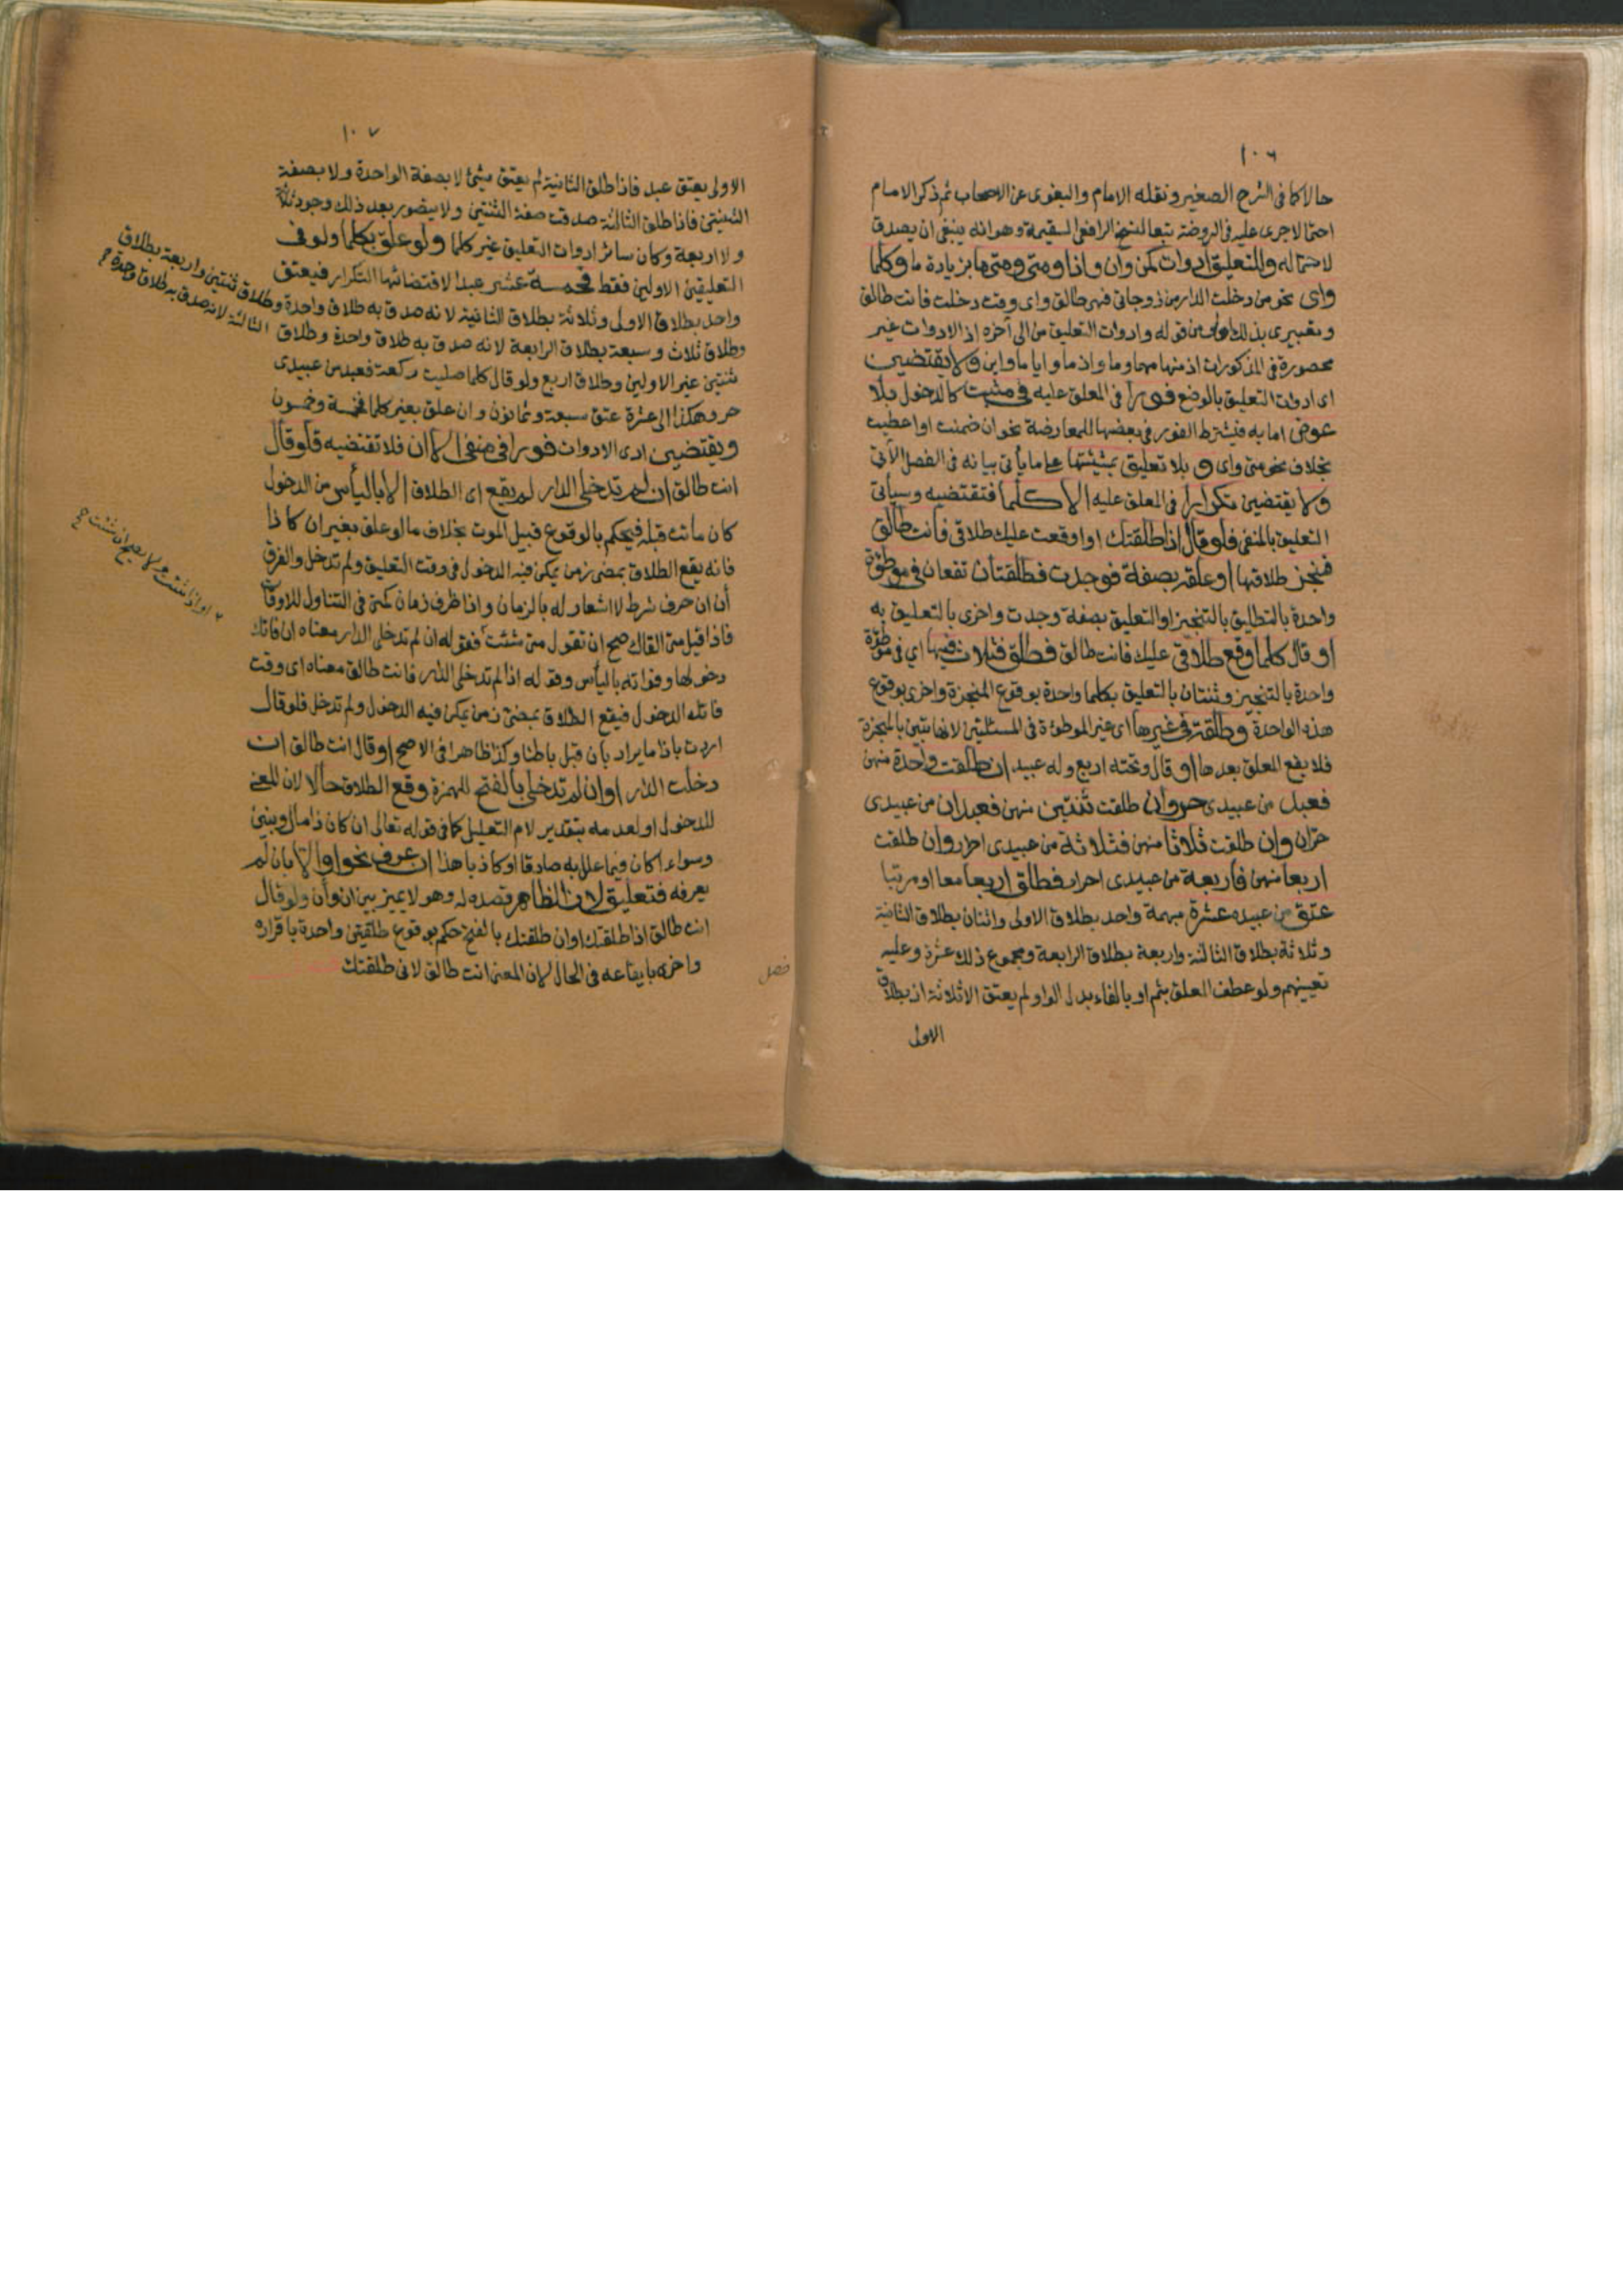 ١٠٦
حالا كما في الشرح الصغير ونقله الامام والبغوي عن الاصحاب ثم ذكر الامام
احتمالا جرى عليه في الروضة تبعا لنسخ الرافعي السقيمة وهو انه ينبغي ان يصدق
لاحتماله وللتعليق ادوات كمن وان واذا ومتى ومتى ما بزيادة ما وكلما
واي نحو من دخلت الدار من زوجاتي فهي طالق واي وقت دخلت فانت طالق
وتعبيري بذلك اولى من قوله وادوات التعليق من الى آخره اذ الادوات غير
محصورة في المذكورات اذ منها مهما وما واذ ما وايا ما واين ولا يقتضين
اي ادوات التعليق بالوضع فورا في المعلق عليه في مثبت كالدخول بلا
عوض اما به فيشترط الفور في بعضها للمعاوضة نحو ان ضمنت او اعطيت
بخلاف نحو متى واي و بلا تعليق بمشيئتها على ما يأتي بيانه في الفصل الآتي
ولا يقتضين تكرارا في المعلق عليه الا كلما فتقتضيه وسيأتي
التعليق بالمنفي فلو قال اذا طلقتك او اوقعت عليك طلاقي فانت طالق
فنجز طلاقها او علقه بصفة فوجدت فطلقتان تقعان في موطؤة
واحدة بالتطليق بالتنجيز او التعليق بصفة وجدت واخرى بالتعليق به
او قال كلما وقع طلاقي عليك فانت طالق فطلق فثلاث فيها اي في موطؤة
واحدة بالتنجيز وثنتان بالتعليق بكلما واحدة بوقوع المنجزة واخرى بوقوع
هذه الواحدة وطلقة في غيرها اي غير الموطوءة في المسئلتين لانها تبين بالمنجزة
فلا يقع المعلق بعدها او قال وتحته اربع وله عبيد ان طلقت واحدة منهن
فعبد من عبيدي حر وان طلقت ثنتين منهن فعبدان من عبيدي
حران وان طلقت ثلاثا منهن فثلاثة من عبيدي احرار وان طلقت
اربعا منهن فاربعة من عبيدي احرار فطلق اربعا معا او مرتبا
عتق من عبيده عشرة مبهمة واحد بطلاق الاولى واثنان بطلاق الثانية
وثلاثة بطلاق الثالثة واربعة بطلاق الرابعة ومجموع ذلك عشرة وعليه
تعيينهم ولو عطف المعلق بثم او بالفاء بدل الواو لم يعتق الا ثلاثة اذ بطلاق
الاولى
١٠٧
الاولى يعتق عبد فاذا طلق الثانية لم يعتق شئ لا بصفة الواحدة ولا بصفة
الثنتين فاذا طلق الثالثة صدقت صفة الثنتين ولا يتصور بعد ذلك وجود ثلاثة
ولا اربعة وكان سائر ادوات التعليق غير كلما ولو علق بكلما ولو في
التعليقين الاولين فقط فخمسة عشر عبدا لاقتضائها التكرار فيعتق
واحد بطلاق الاولى وثلاثة بطلاق الثانية لانه صدق به طلاق واحدة وطلاق ثنتين واربعة بطلاق
الثالثة لانه صدق به طلاق واحدة
وطلاق ثلاث وسبعة بطلاق الرابعة لانه صدق به طلاق واحدة وطلاق
ثنتين غير الاولين وطلاق اربع ولو قال كلما صليت ركعة فعبد من عبيدي
حر وهكذا الى عشرة عتق سبعة وثمانون وان علق بغير كلما فخمسة وخمسون
ويقتضين اي الادوات فورا في منفي الا ان فلا تقتضيه فلو قال
انت طالق ان لم تدخلي الدار لم يقع اي الطلاق الا باليأس من الدخول
كان ماتت قبله فيحكم بالوقوع قبيل الموت بخلاف ما لو علق بغير ان كاذا
فانه يقع الطلاق بمضي زمن يمكن فيه الدخول في وقت التعليق ولم تدخل والفرق
أن ان حرف شرط لا اشعار له بالزمان واذا ظرف زمان كمتى في التناول للاوقات
فاذا قيل متى القاك صح ان تقول متى شئت فقوله ان لم تدخلي الدار معناه ان فاتك
او اذا شئت ولا يصح ان شئت صح
دخولها وفواته باليأس وقوله اذا لم تدخلي الدار فانت طالق معناه اي وقت
فاتك الدخول فيقع الطلاق بمضي زمن يمكن فيه الدخول ولم تدخل فلو قال
اردت باذا ما يراد بان قبل باطنا وكذا ظاهرا في الاصح او قال انت طالق ان
دخلت الدار او ان لم تدخلي بالفتح للهمزة وقع الطلاق حالا لان المعنى
للدخول او لعدمه بتقدير لام التعليل كما في قوله تعالى ان كان ذا مال وبنين
وسواء اكان فيما علل به صادقا او كاذبا هذا ان عرف نحوا والا بان لم
يعرفه فتعليق لان الظاهر قصده له وهو لا يميز بين ان وأن ولو قال
انت طالق اذا طلقتك او ان طلقتك بالفتح حكم بوقوع طلقتين واحدة باقراره
واخرى بايقاعه في الحال لان المعنى انت طالق لاني طلقتك
فصل